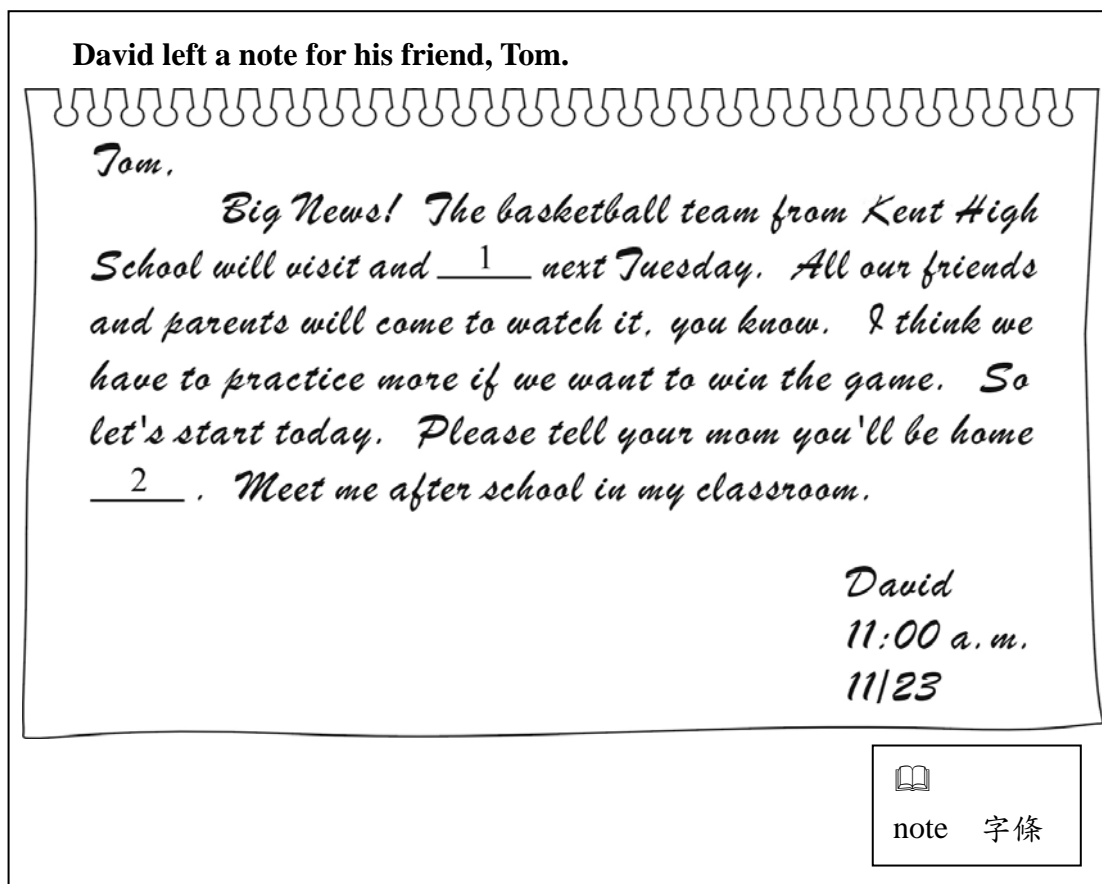 David left a note for his friend, Tom.
Tom,
Big News! The basketball team from Kent High
School will visit and 1 next Tuesday. All our friends
and parents will come to watch it, you know. I think we
have to practice more if we want to win the game. So
let's start today. Please tell your mom you'll be home
2 . Meet me after school in my classroom.
David
11:00 a.m.
11/23
note 字條